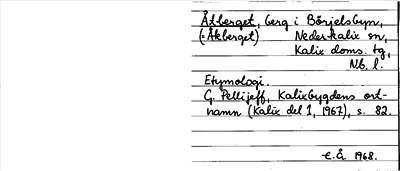 Åtberget, berg i Börjelsbyn,
(: Åkberget) Nederkalix sn,
Kalix doms. tg,
Nb. l.
Etymologi.
G. Pellijeff, Kalixbygdens ort-
namn (Kalix del 1, 1967), s. 82.
E.Å. 1968.